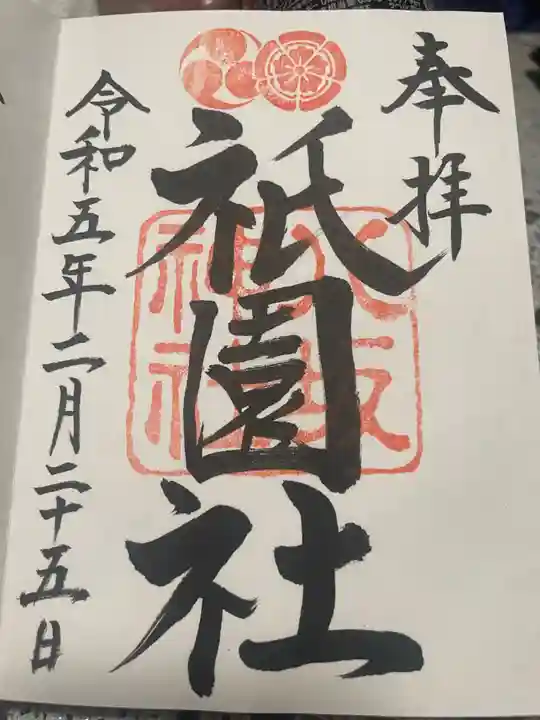 奉拝
八坂
神社
祇園社
令和五年二月二十五日